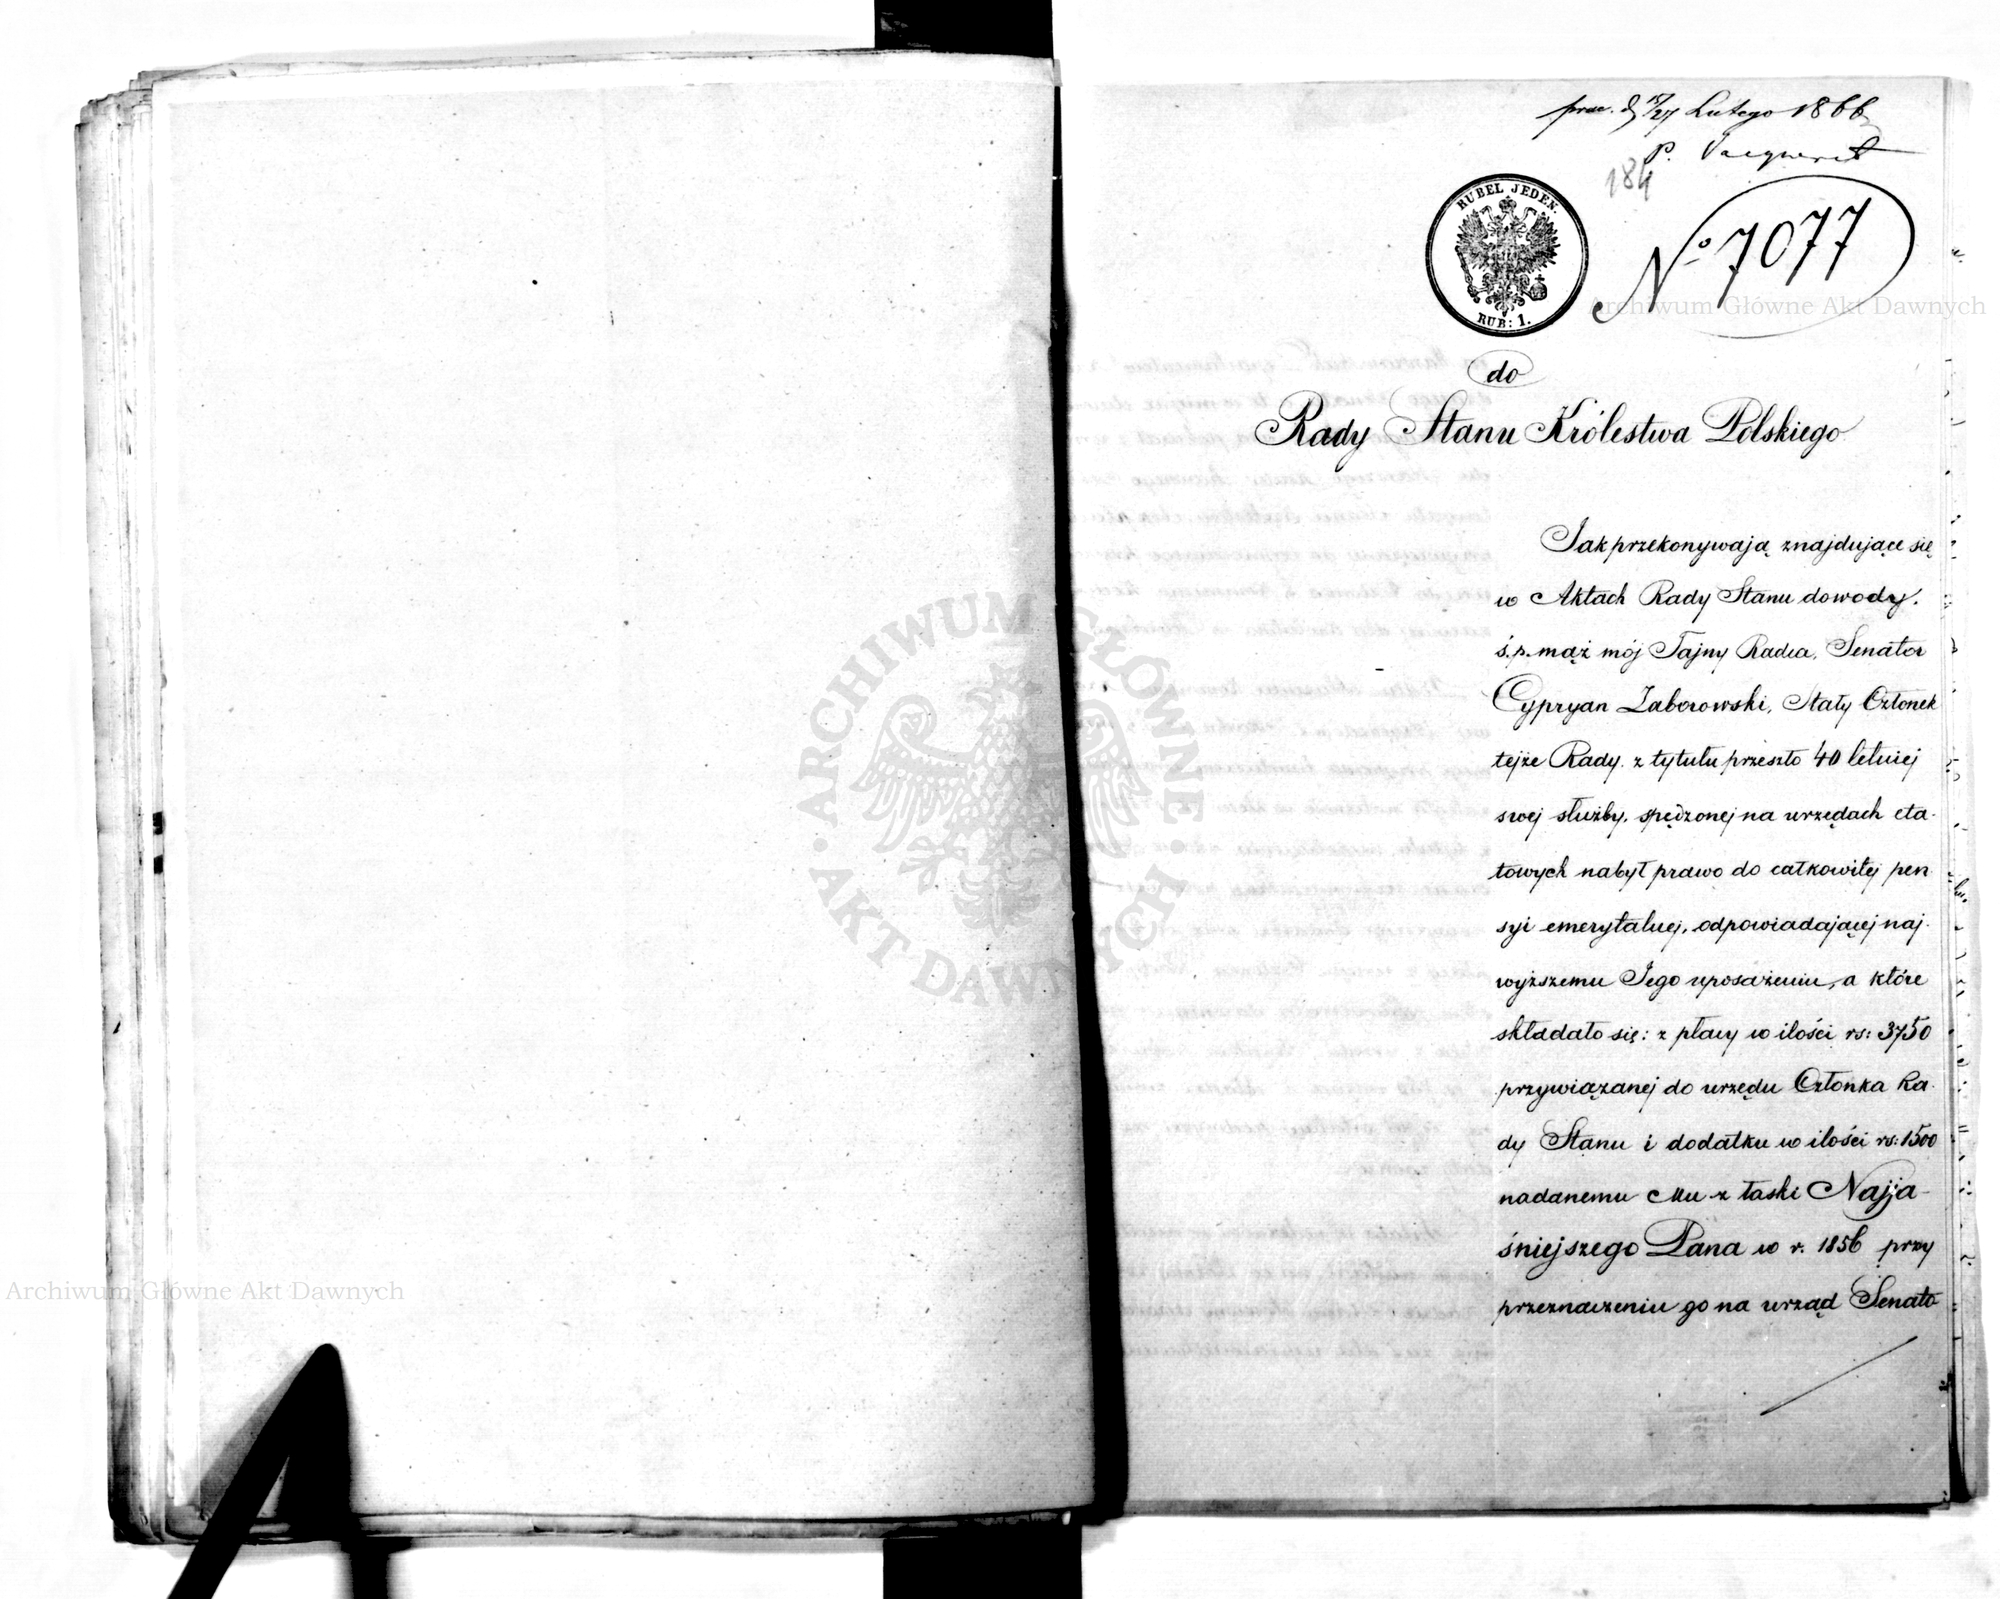 15/27 Lutego 1866
P.
184
RUBEL JEDEN.
RUB: 1.
No 7077
do
Rady Stanu Królestwa Polskiego
Jak przekonywają znajdujące się
w Aktach Rady Stanu dowody,
ś.p. mąż mój Tajny Radca, Senator
Cypryan Zaborowski, Stały Członek
tejże Rady z tytułu przeszło 40 letniej
swej służby, spędzonej na urzędach eta-
towych nabył prawo do całkowitej pen
syi emerytalnej, odpowiadającej naj-
wyższemu Jego uposażeniu, a które
składało się: z płacy w ilości rs: 3750
przywiązanej do urzędu Członka Ra-
dy Stanu i dodatku w ilości rs: 1500
nadanemu Mu z łaski Najja-
śniejszego Pana w r. 1856 przy
przeznaczeniu go na urząd Senato
ARCHIWUM GŁÓWNE AKT DAWNYCH
Archiwum Główne Akt Dawnych
Archiwum Główne Akt Dawnych